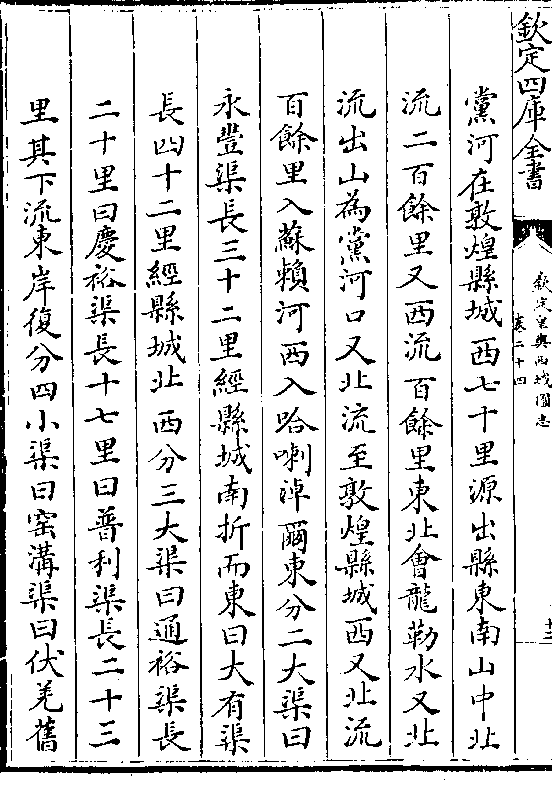 欽定四庫全書
欽定皇輿西域圖志
卷二十四
十三
黨河在敦煌縣城西七十里源出縣東南山中北
流二百餘里又西流百餘里東北會龍勒水又北
流出山為黨河口又北流至敦煌縣城西又北流
百餘里入蘇賴河西入哈喇淖爾東分二大渠曰
永豐渠長三十二里經縣城南折而東曰大有渠
長四十二里經縣城北西分三大渠曰通裕渠長
二十里曰慶裕渠長十七里曰普利渠長二十三
里其下流東岸復分四小渠曰窑溝渠曰伏羌舊